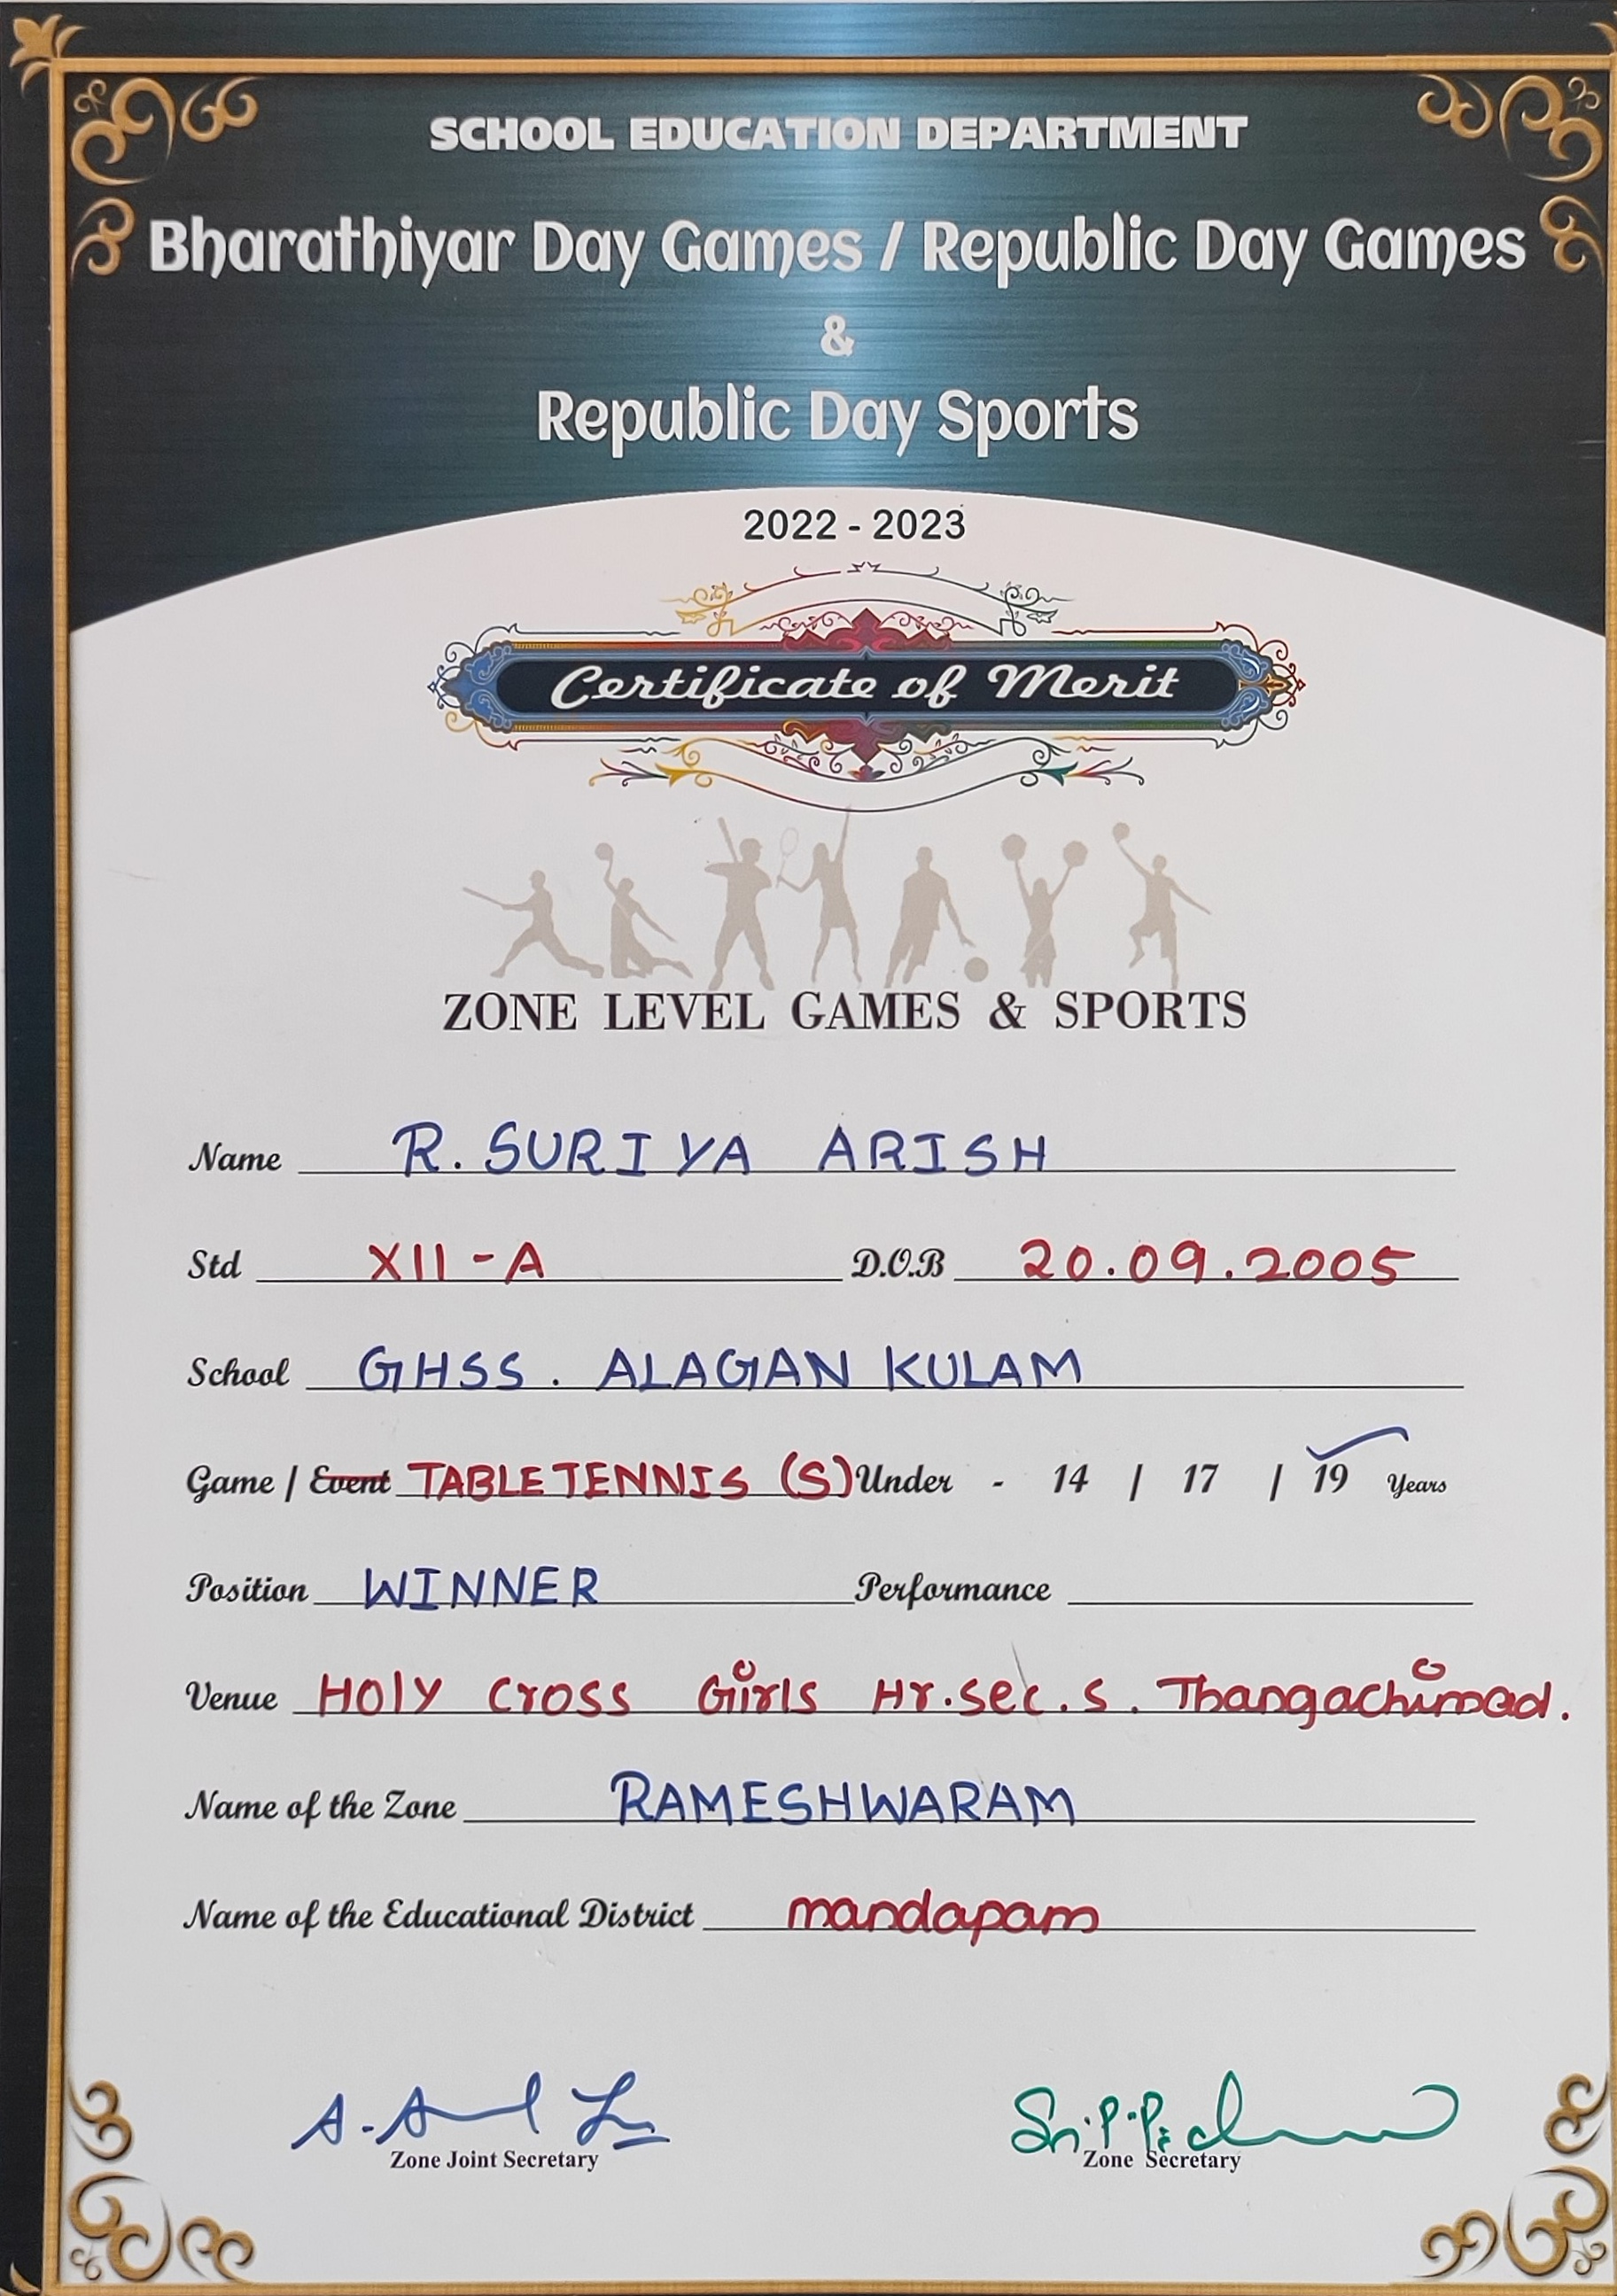 SCHOOL EDUCATION DEPARTMENT
Bharathiyar Day Games / Republic Day Games
&
Republic Day Sports
2022 - 2023
Certificate of Merit
ZONE LEVEL GAMES & SPORTS
Name R. SURIYA ARISH
Std XII - A D.O.B 20.09.2005
School GHSS. ALAGAN KULAM
Game / Event TABLE TENNIS (S) Under - 14 / 17 / 19 Years
Position WINNER Performance
Venue HOly Cross Girls Hr.sec.s. Thangachimad.
Name of the Zone RAMESHWARAM
Name of the Educational District mandapam
Zone Joint Secretary Zone Secretary